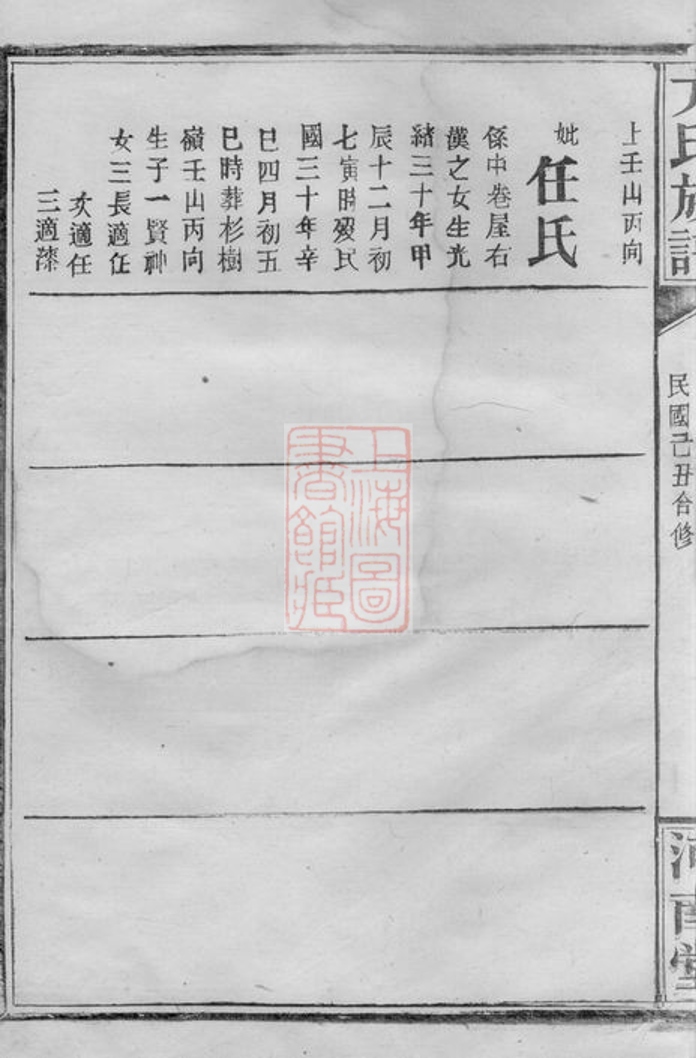 氏族譜
民國己丑合修
河南堂
上壬山丙向
妣任氏
係中巷屋右
漢之女生光
緒三十年甲
辰十二月初
七寅時歿民
國三十年辛
巳四月初五
巳時葬杉樹
嶺壬山丙向
生子一賢神
女三長適任
次適任
三適漆
上海圖
書館